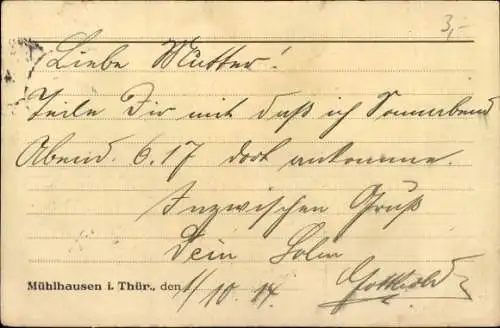 3,-
Liebe Mutter!
Teile Dir mit daß ich Sonnabend
Abend. 6.17 dort ankomme.
Inzwischen Gruß
Dein Sohn
Gotthold
Mühlhausen i. Thür., den 1/10. 14.